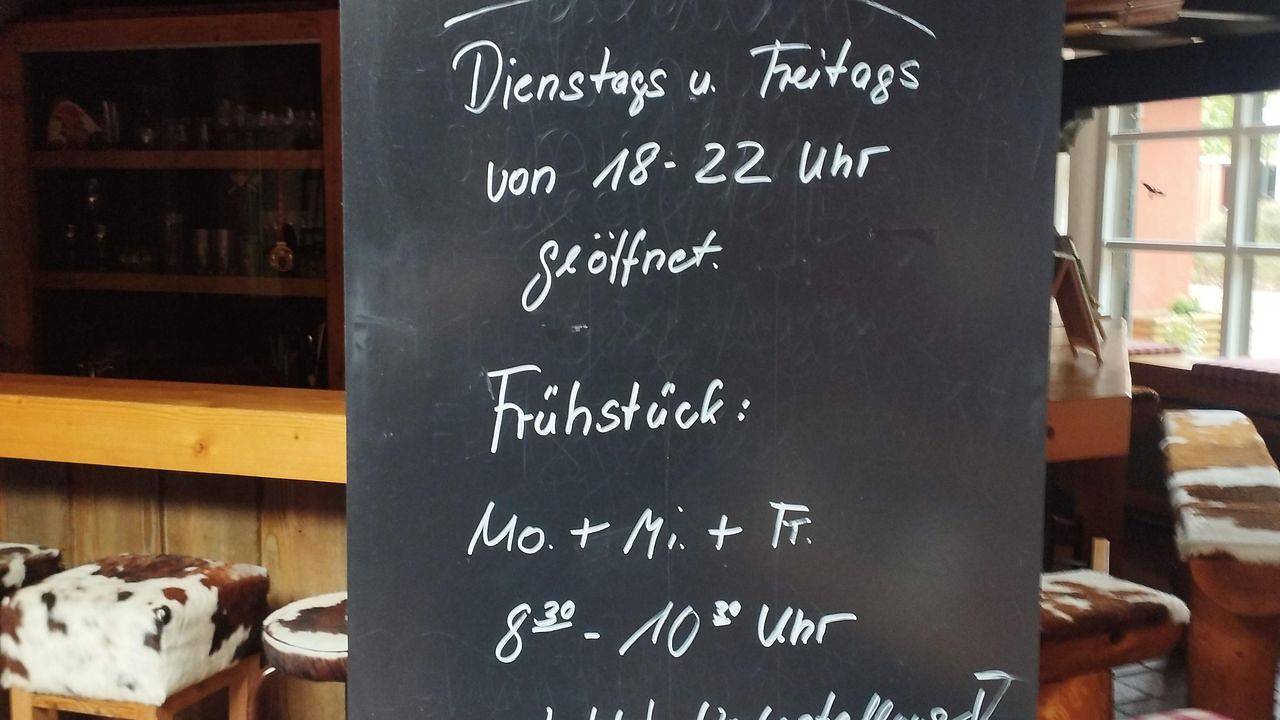 Dienstags u. Freitags
von 18-22 Uhr
geöffnet.
Frühstück:
Mo. + Mi. + Fr.
8³⁰- 10³⁰ Uhr